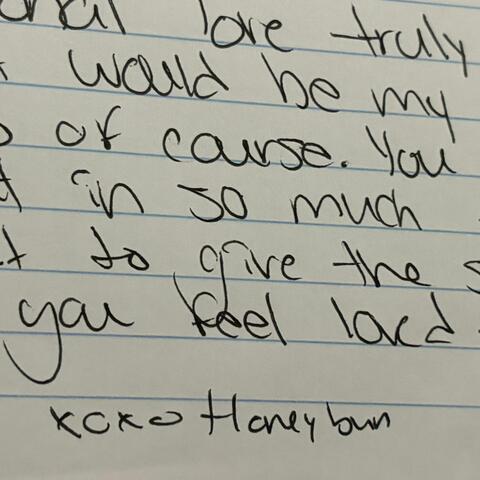 onal love truly
would be my
of course. You
in so much
to give the s
you feel loved
xoxo Honeybun